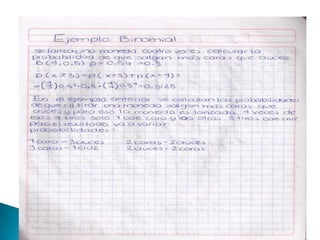 Ejemplo Binomial
Se lanza una moneda cuatro veces calcular la
probabilidad de que salgan más caras que cruces
B(4, 0.5) p = 0.5 q = 0.5
p(x≥3) = p(x=3) + p(x=4) =
En el ejemplo anterior se calculan las probabilidades
de que al tirar una moneda salgan más caras que
cruces y para eso la moneda es lanzada 4 veces de
esos 4 tiros solo 1 cae cara y los otros 3 tiros cae cruz
pero el resultado va a variar
probabilidades:
1 cara - 3 cruces 2 caras - 2 cruces
3 caras - 1 cruz 2 cruces - 2 caras